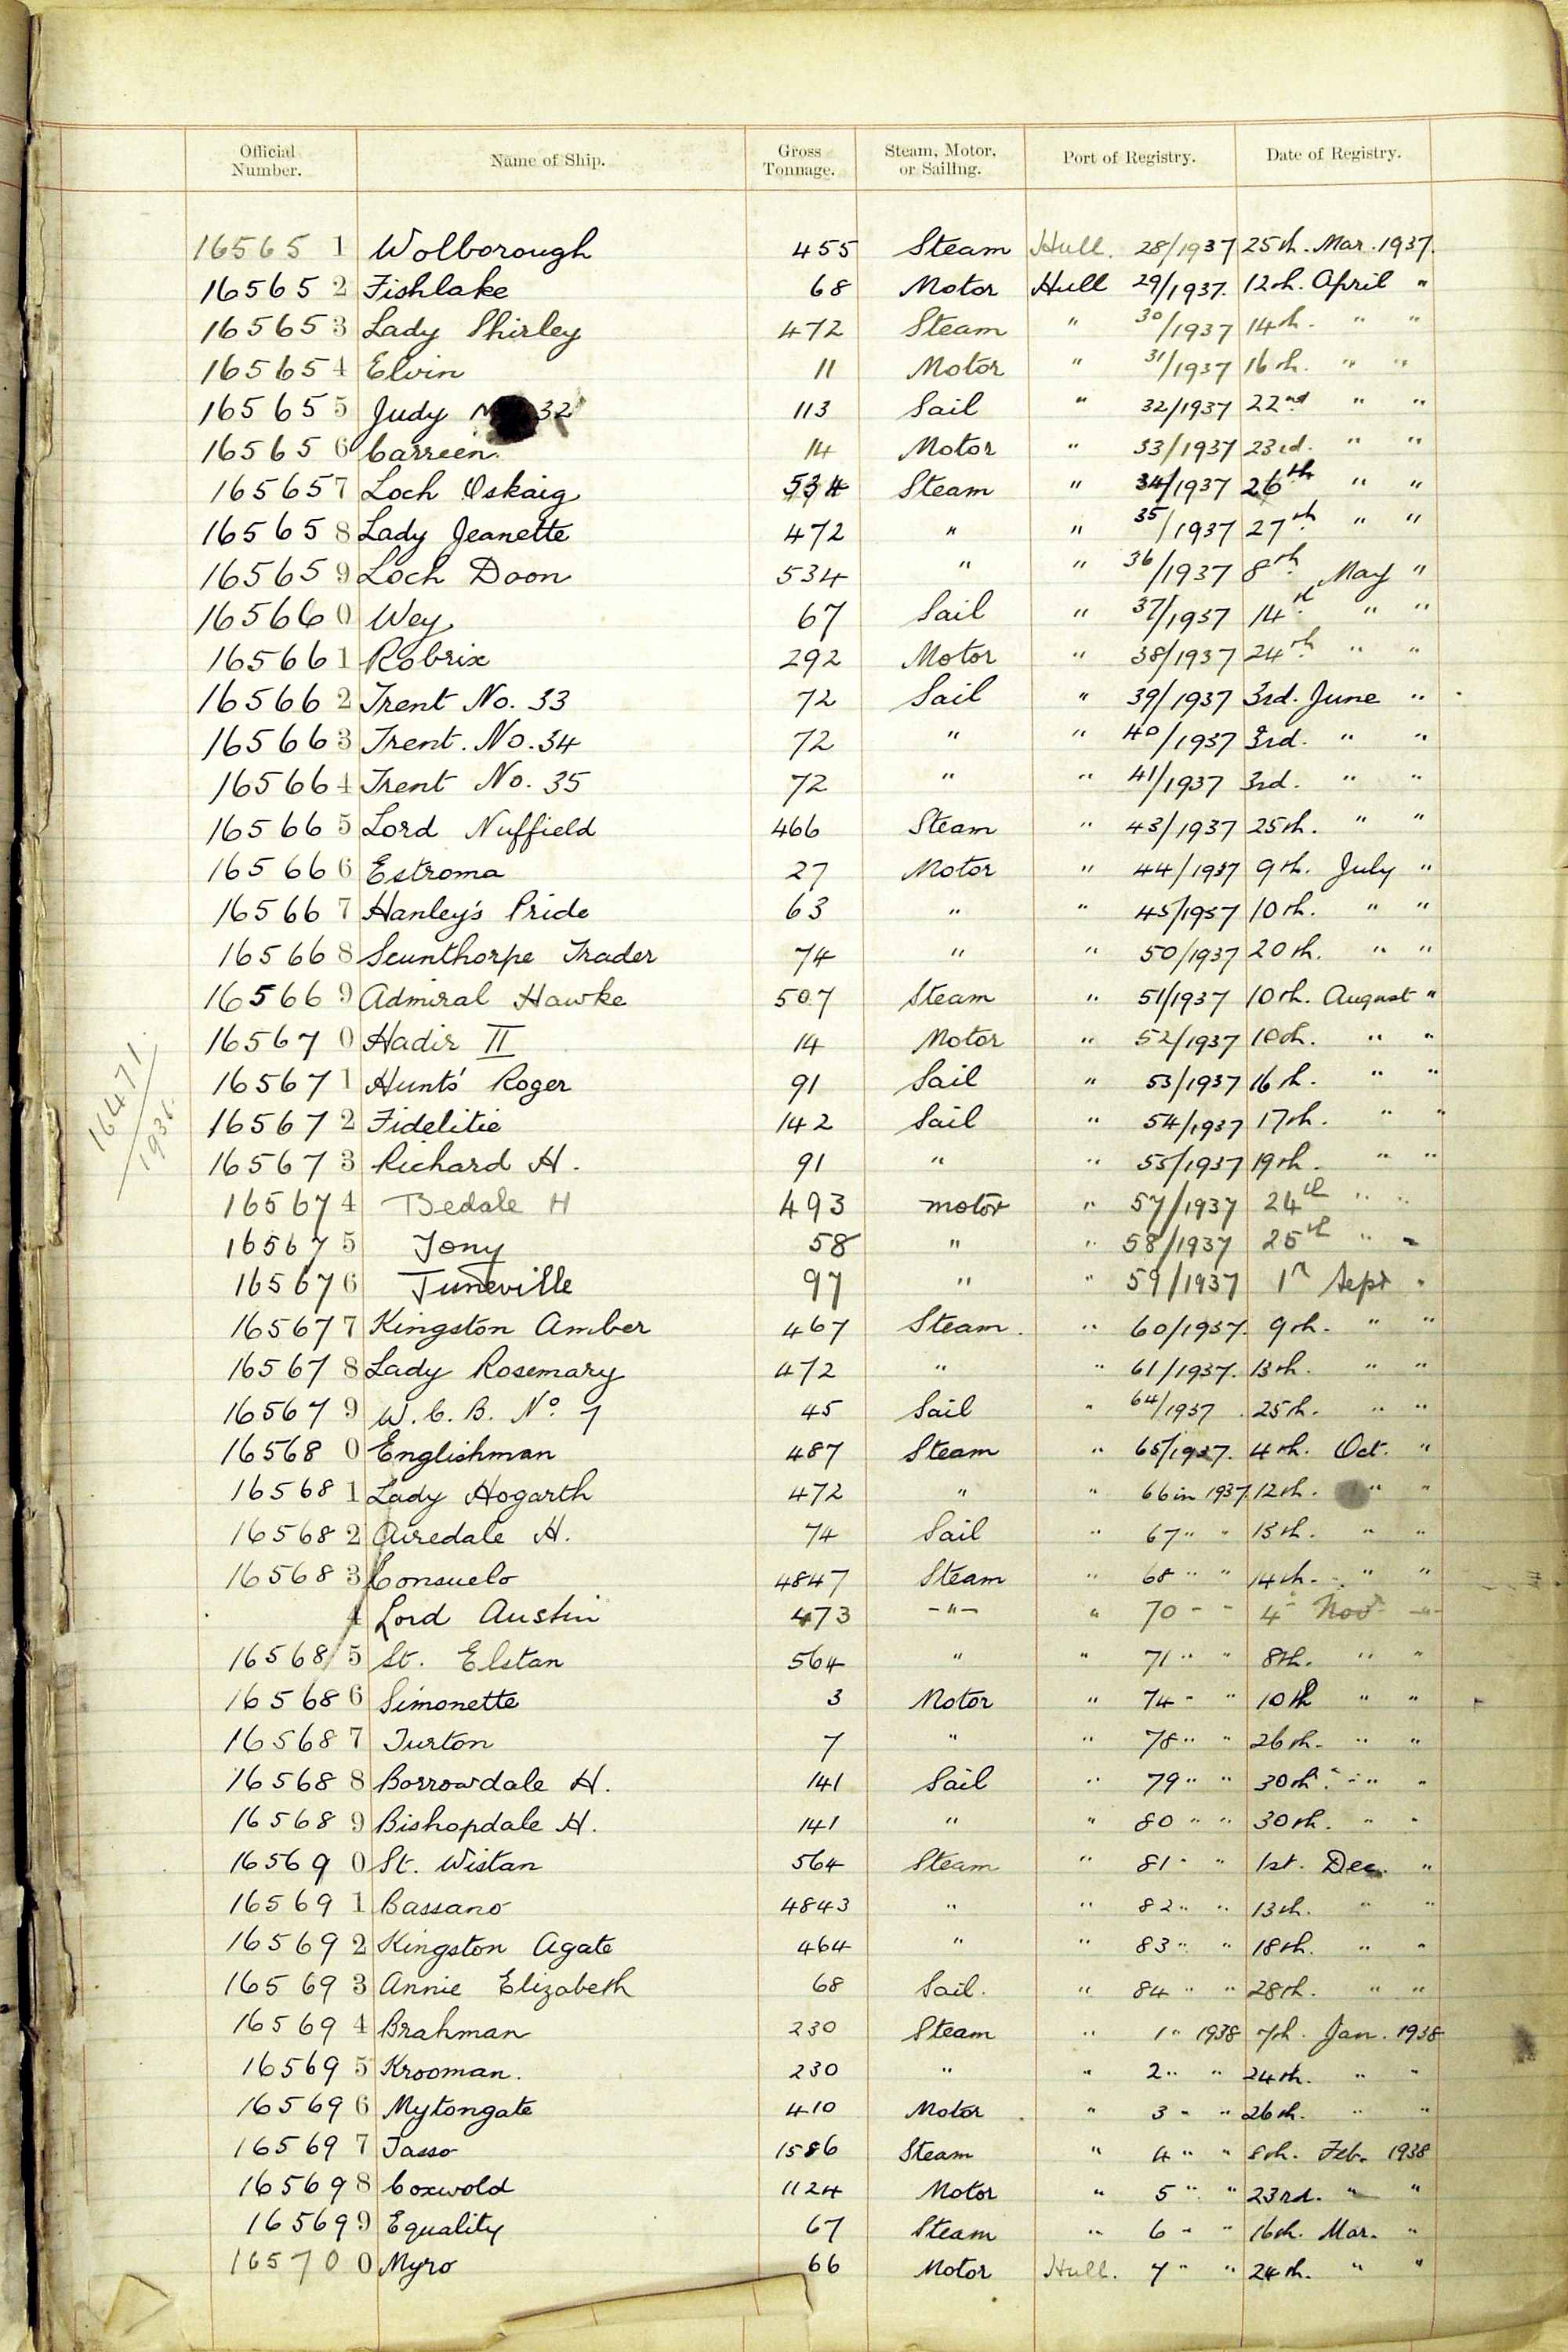 Official Number. Name of Ship. Gross Tonnage. Steam, Motor, or Sailing. Port of Registry. Date of Registry.
165651 Wolborough 455 Steam Hull. 28/1937 25th. Mar. 1937.
165652 Fishlake 68 Motor Hull 29/1937. 12th. April "
165653 Lady Shirley 472 Steam " 30/1937 14th. " "
165654 Elvin 11 Motor " 31/1937 16th. " "
165655 Judy 32 113 Sail " 32/1937 22nd " "
165656 Carreen 14 Motor " 33/1937 23rd. " "
165657 Loch Oskaig 534 Steam " 34/1937 26th " "
165658 Lady Jeanette 472 " " 35/1937 27th " "
165659 Loch Doon 534 " " 36/1937 8th. May "
165660 Wey 67 Sail " 37/1937 14th " "
165661 Robrix 292 Motor " 38/1937 24th " "
165662 Trent No. 33 72 Sail " 39/1937 3rd. June "
165663 Trent. No. 34 72 " " 40/1937 3rd. " "
165664 Trent No. 35 72 " " 41/1937 3rd. " "
165665 Lord Nuffield 466 Steam " 43/1937 25th. " "
165666 Estroma 27 Motor " 44/1937 9th. July "
165667 Hanley's Pride 63 " " 45/1937 10th. " "
165668 Scunthorpe Trader 74 " " 50/1937 20th. " "
165669 Admiral Hawke 507 Steam " 51/1937 10th. August "
165670 Hadir II 14 Motor " 52/1937 10th. " "
165671 Hunts' Roger 91 Sail " 53/1937 16th. " "
165672 Fidelitie 142 Sail " 54/1937 17th. " "
165673 Richard H. 91 " " 55/1937 19th. " "
16471/1936.
165674 Bedale H 493 motor " 57/1937 24th " "
165675 Tony 58 " " 58/1937 25th " "
165676 Juneville 97 " " 59/1937 1st Sept "
165677 Kingston Amber 467 Steam. " 60/1937. 9th. " "
165678 Lady Rosemary 472 " " 61/1937. 13th. " "
165679 W. C. B. No. 7 45 Sail " 64/1937 25th. " "
165680 Englishman 487 Steam " 65/1937. 4th. Oct. "
165681 Lady Hogarth 472 " " 66 in 1937. 12th. " "
165682 Airedale H. 74 Sail " 67 " " 13th. " "
165683 Consuelo 4847 Steam " 68 " " 14th. " "
4 Lord Austin 473 -"- " 70 - - 4 Nov -"-
165685 St. Elstan 564 " " 71 " " 8th. " "
165686 Simonette 3 Motor " 74 - " 10th " "
165687 Turton 7 " " 78 " " 26th. " "
165688 Borrowdale H. 141 Sail " 79 " " 30th. " "
165689 Bishopdale H. 141 " " 80 " " 30th. " "
165690 St. Wistan 564 Steam " 81 " " 1st. Dec. "
165691 Bassano 4843 " " 82 " " 13th. " "
165692 Kingston Agate 464 " " 83 " " 18th. " "
165693 Annie Elizabeth 68 Sail. " 84 " " 28th. " "
165694 Brahman 230 Steam " 1 " 1938 7th. Jan. 1938
165695 Krooman. 230 " " 2 " " 24th. " "
165696 Mytongate 410 Motor " 3 " " 26th. " "
165697 Tasso 1586 Steam " 4 " " 8th. Feb. 1938
165698 Coxwold 1124 Motor " 5 " " 23rd. " "
165699 Equality 67 Steam " 6 " " 16th. Mar. "
165700 Myro 66 Motor Hull. 7 " " 24th. " "